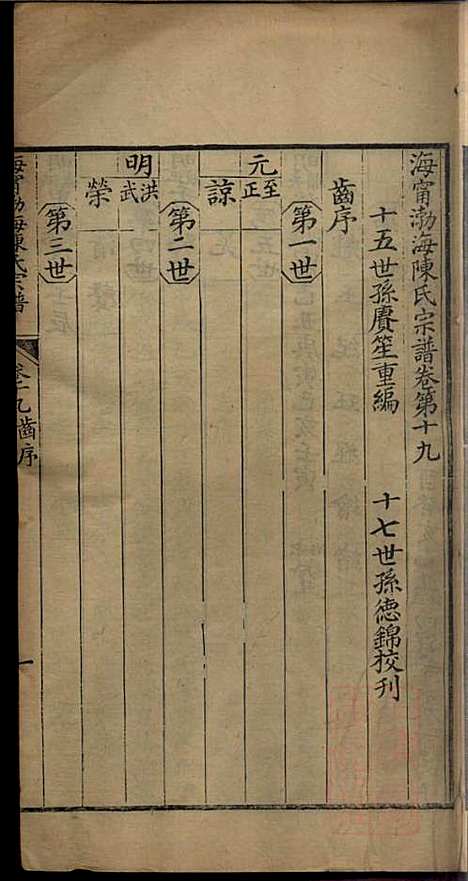 海甯渤海陳氏宗譜卷第十九
十五世孫賡笙重編 十七世孫德錦校刊
齒序
第一世
元 至正
諒
第二世
明 洪武
榮
第三世
海甯渤海陳氏宗譜 卷十九齒序 一